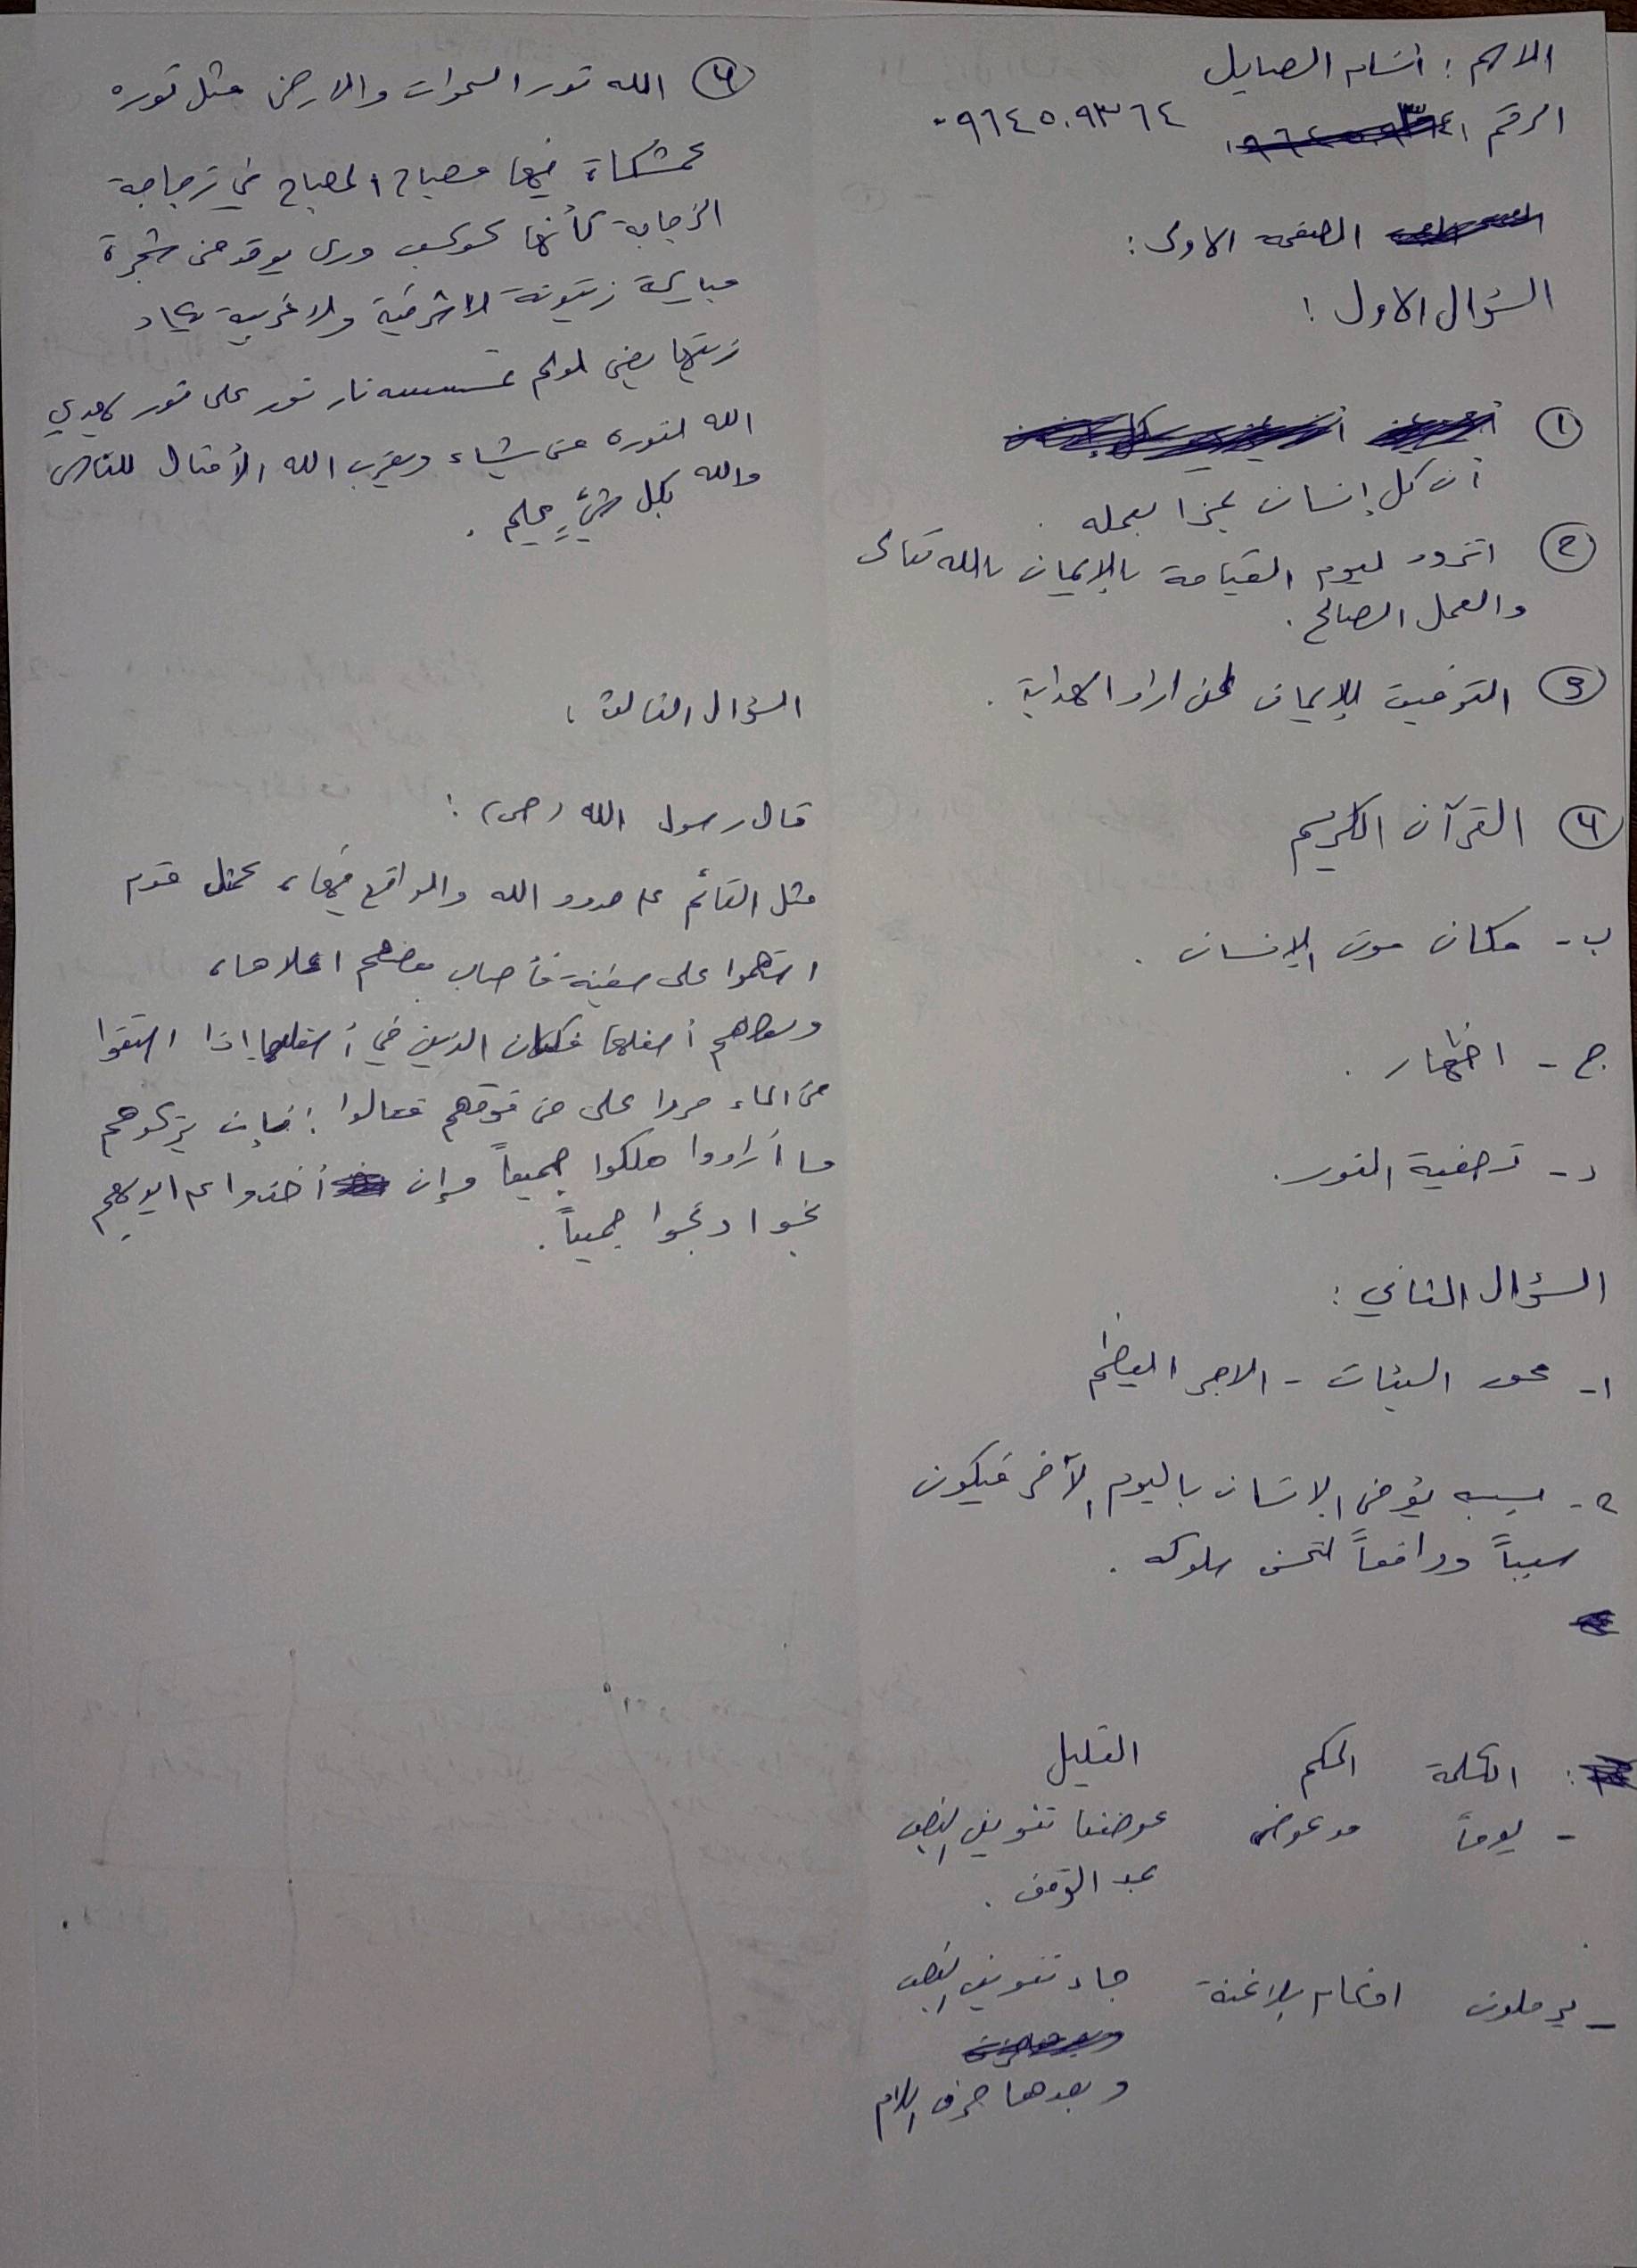 الاسم : انسام الصايل
الرقم ٠٩٦٤٥٠٩٣٦٤
الصفحة الاولى :
السؤال الاول :
① أن كل إنسان يجزا بعمله .
② اتزود ليوم القيامة بالإيمان بالله تعالى
والعمل الصالح .
③ التوفيق للإيمان لمن اراد الهداية .
④ القرآن الكريم
ب - مكان موت الإنسان .
ج - اظهار .
د - تصفية النور .
السؤال الثاني :
١- محور السيئات - الاجر العظيم
٢- بسبب يؤمن الانسان باليوم الآخر فيكون
سبباً ودافعاً لتحسن سلوكه .
: الكلمة الحكم التعليل
- يوماً مد عوض عوضنا تنوين النصب
عند الوقف .
- يرملون ادغام بلا غنة جاء تنوين النصب
وبعدها حرف اللام
④ الله نور السموات والارض مثل نوره
كمشكاة فيها مصباح المصباح في زجاجة
الزجاجة كأنها كوكب دري يوقد من شجرة
مباركة زيتونة لا شرقية ولا غربية يكاد
زيتها يضي لولم تمسسه نار نور على نور يهدي
الله لنوره من يشاء ويضرب الله الأمثال للناس
والله بكل شيءٍ عليم .
السؤال الثالث :
قال رسول الله (ص) :
مثل القائم على حدود الله والواقع فيها، كمثل قوم
استهموا على سفينة فأصاب بعضهم اعلاها،
وبعضهم أسفلها فكان الذين في أسفلها إذا استقوا
من الماء مروا على من فوقهم فقالوا : فإن يتركوهم
ما أرادوا هلكوا جميعاً وإن أخذوا على ايديهم
نجوا ونجوا جميعاً .